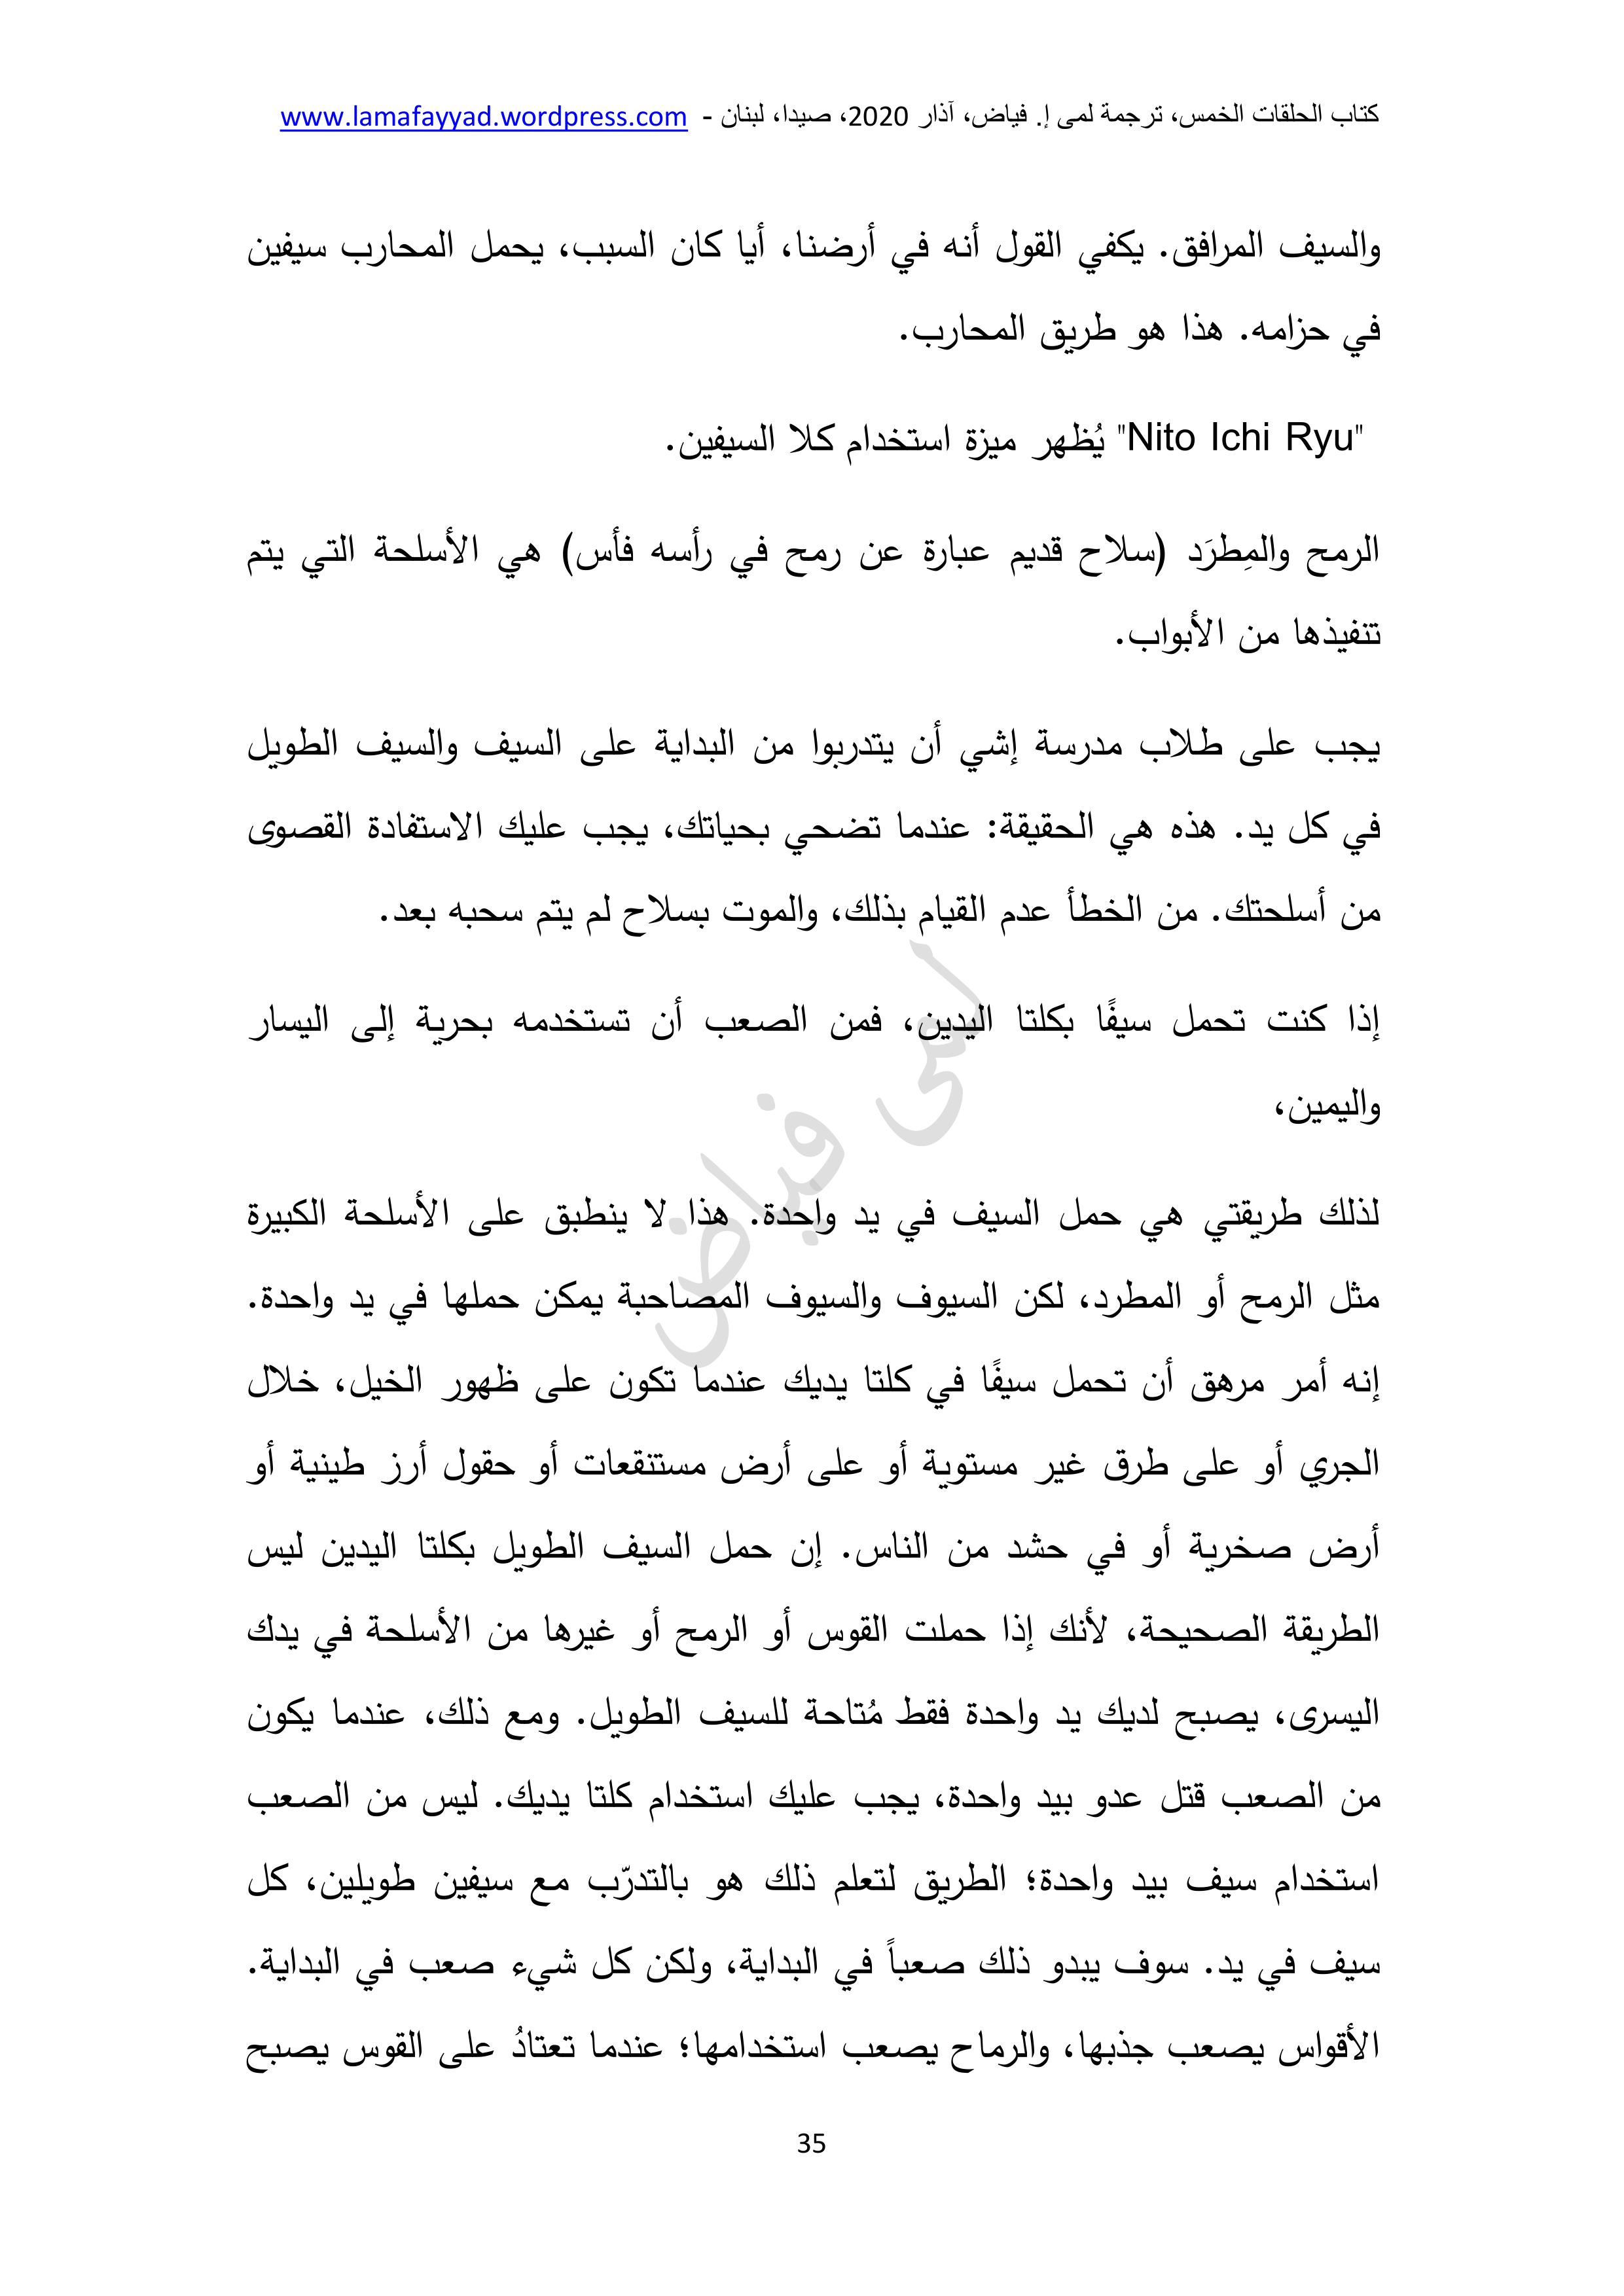 كتاب الحلقات الخمس، ترجمة لمى إ. فياض، آذار 2020، صيدا، لبنان - www.lamafayyad.wordpress.com
والسيف المرافق. يكفي القول أنه في أرضنا، أيا كان السبب، يحمل المحارب سيفين
في حزامه. هذا هو طريق المحارب.
"Nito Ichi Ryu" يُظهر ميزة استخدام كلا السيفين.
الرمح والمِطرَد (سلاح قديم عبارة عن رمح في رأسه فأس) هي الأسلحة التي يتم
تنفيذها من الأبواب.
يجب على طلاب مدرسة إشي أن يتدربوا من البداية على السيف والسيف الطويل
في كل يد. هذه هي الحقيقة: عندما تضحي بحياتك، يجب عليك الاستفادة القصوى
من أسلحتك. من الخطأ عدم القيام بذلك، والموت بسلاح لم يتم سحبه بعد.
إذا كنت تحمل سيفًا بكلتا اليدين، فمن الصعب أن تستخدمه بحرية إلى اليسار
واليمين،
لذلك طريقتي هي حمل السيف في يد واحدة. هذا لا ينطبق على الأسلحة الكبيرة
مثل الرمح أو المطرد، لكن السيوف والسيوف المصاحبة يمكن حملها في يد واحدة.
إنه أمر مرهق أن تحمل سيفًا في كلتا يديك عندما تكون على ظهور الخيل، خلال
الجري أو على طرق غير مستوية أو على أرض مستنقعات أو حقول أرز طينية أو
أرض صخرية أو في حشد من الناس. إن حمل السيف الطويل بكلتا اليدين ليس
الطريقة الصحيحة، لأنك إذا حملت القوس أو الرمح أو غيرها من الأسلحة في يدك
اليسرى، يصبح لديك يد واحدة فقط مُتاحة للسيف الطويل. ومع ذلك، عندما يكون
من الصعب قتل عدو بيد واحدة، يجب عليك استخدام كلتا يديك. ليس من الصعب
استخدام سيف بيد واحدة؛ الطريق لتعلم ذلك هو بالتدرّب مع سيفين طويلين، كل
سيف في يد. سوف يبدو ذلك صعباً في البداية، ولكن كل شيء صعب في البداية.
الأقواس يصعب جذبها، والرماح يصعب استخدامها؛ عندما تعتادُ على القوس يصبح
لمى فياض
35